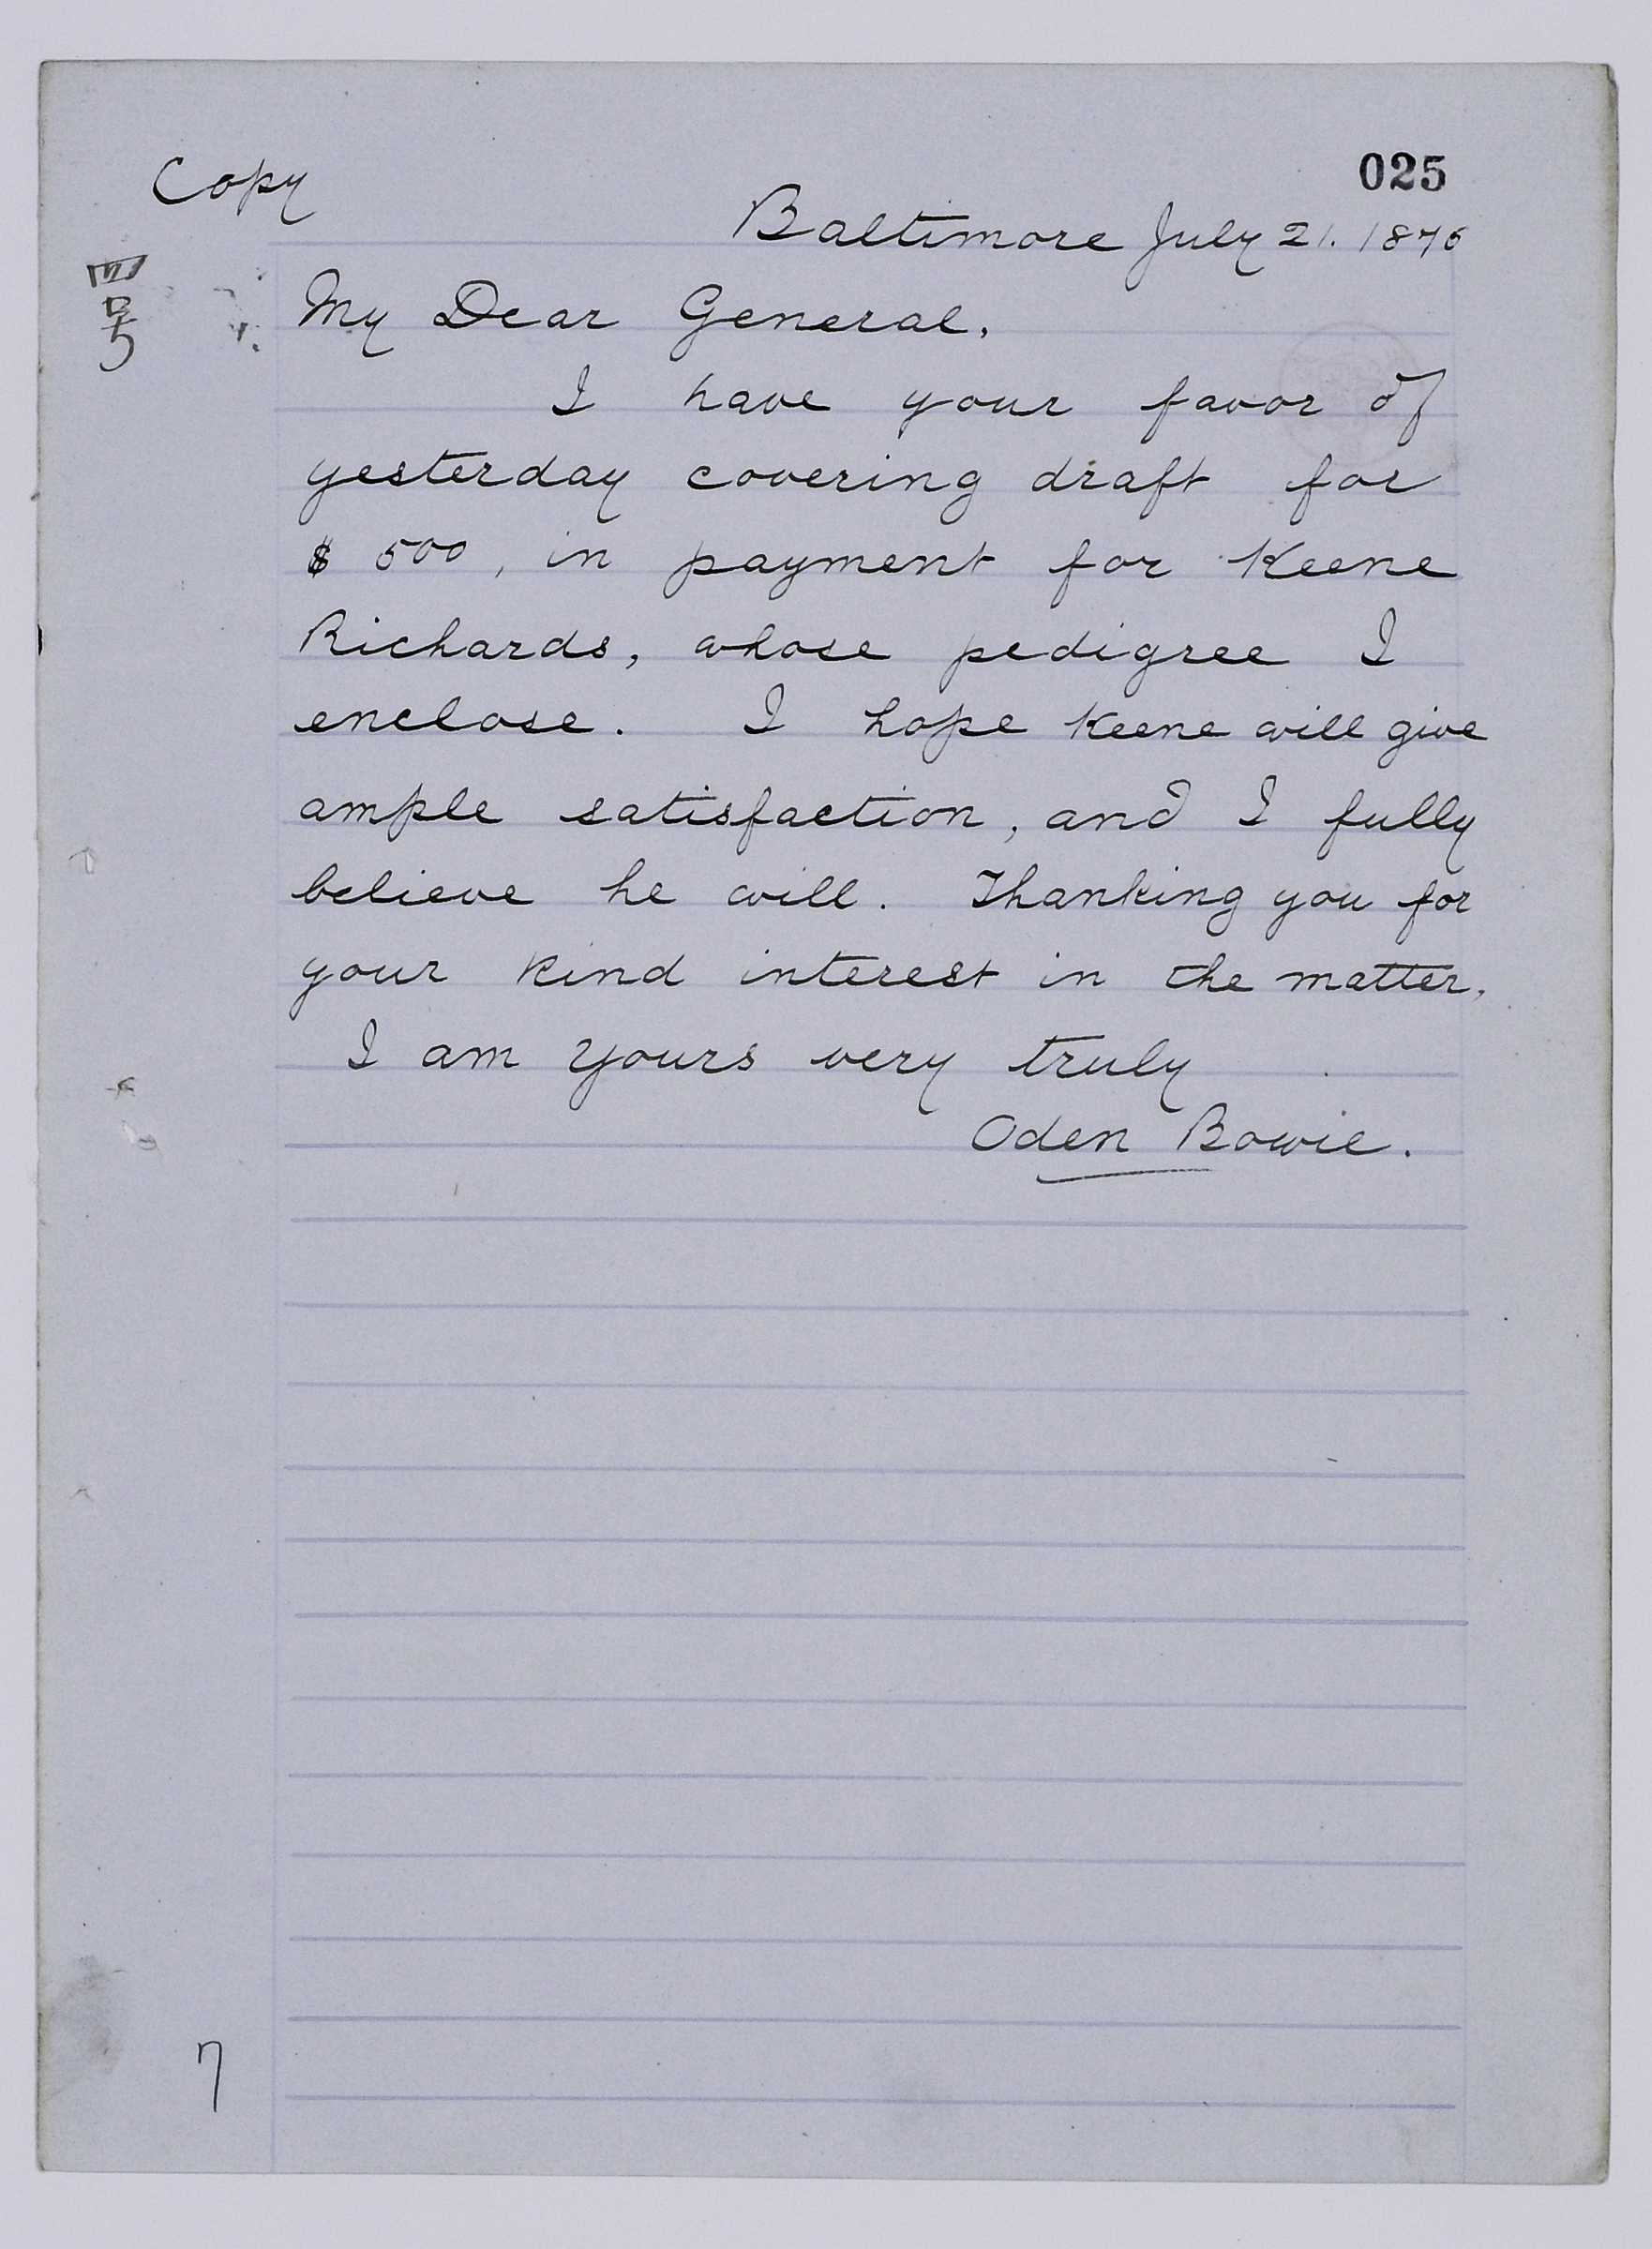 Copy
025
Baltimore July 21. 1876
四号
My Dear General,
I have your favor of
yesterday covering draft for
$ 500, in payment for Keene
Richards, whose pedigree I
enclose. I hope Keene will give
ample satisfaction, and I fully
believe he will. Thanking you for
your kind interest in the matter,
I am yours very truly
Oden Bowie.
7